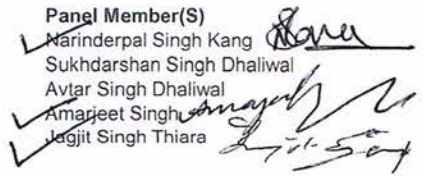 Panel Member(S)
Narinderpal Singh Kang
Sukhdarshan Singh Dhaliwal
Avtar Singh Dhaliwal
Amarjeet Singh
Jagjit Singh Thiara